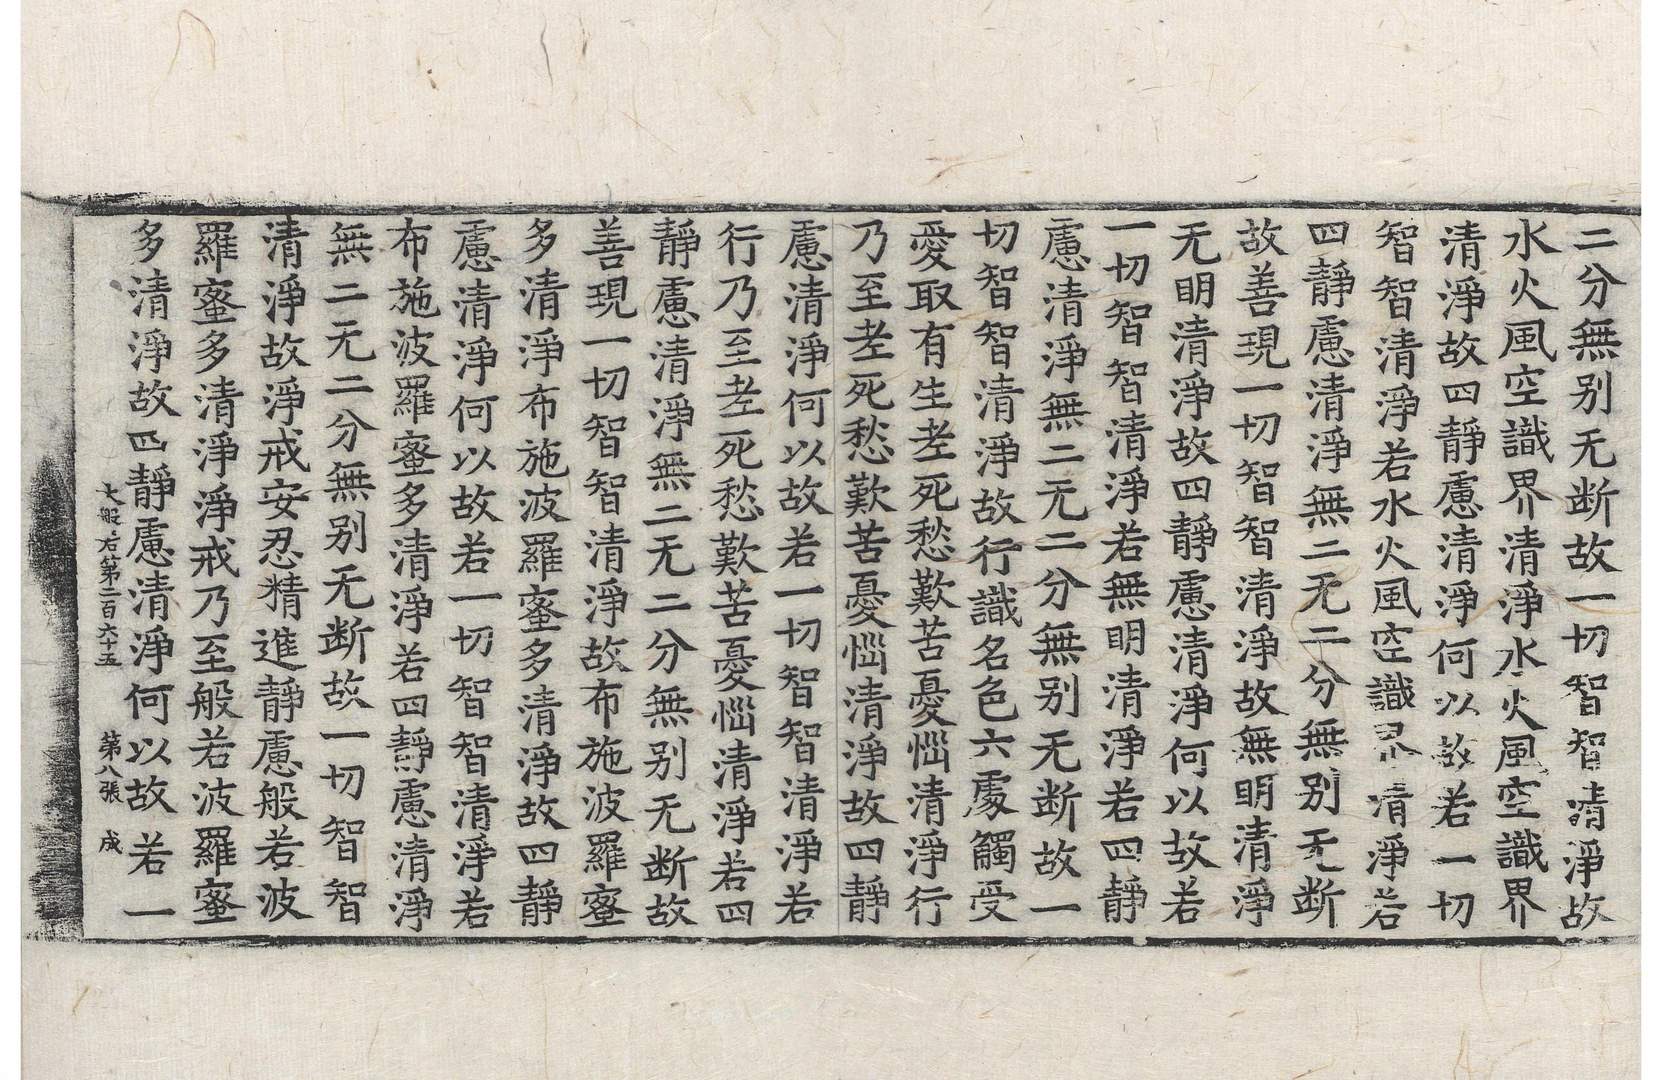 二分無别无断故一切智智清淨故
水火風空識界清淨水火風空識界
清淨故四靜慮清淨何以故若一切
智智清淨若水火風空識界清淨若
四靜慮清淨無二无二分無别无断
故善現一切智智清淨故無明清淨
无明清淨故四靜慮清淨何以故若
一切智智清淨若無明清淨若四靜
慮清淨無二无二分無别无断故一
切智智清淨故行識名色六處觸受
愛取有生老死愁歎苦憂惱清淨行
乃至老死愁歎苦憂惱清淨故四靜
慮清淨何以故若一切智智清淨若
行乃至老死愁歎苦憂惱清淨若四
靜慮清淨無二无二分無别无断故
善現一切智智清淨故布施波羅蜜
多清淨布施波羅蜜多清淨故四靜
慮清淨何以故若一切智智清淨若
布施波羅蜜多清淨若四靜慮清淨
無二无二分無别无断故一切智智
清淨故淨戒安忍精進靜慮般若波
羅蜜多清淨淨戒乃至般若波羅蜜
多清淨故四靜慮清淨何以故若一
大般若第二百六十五 第八張 成